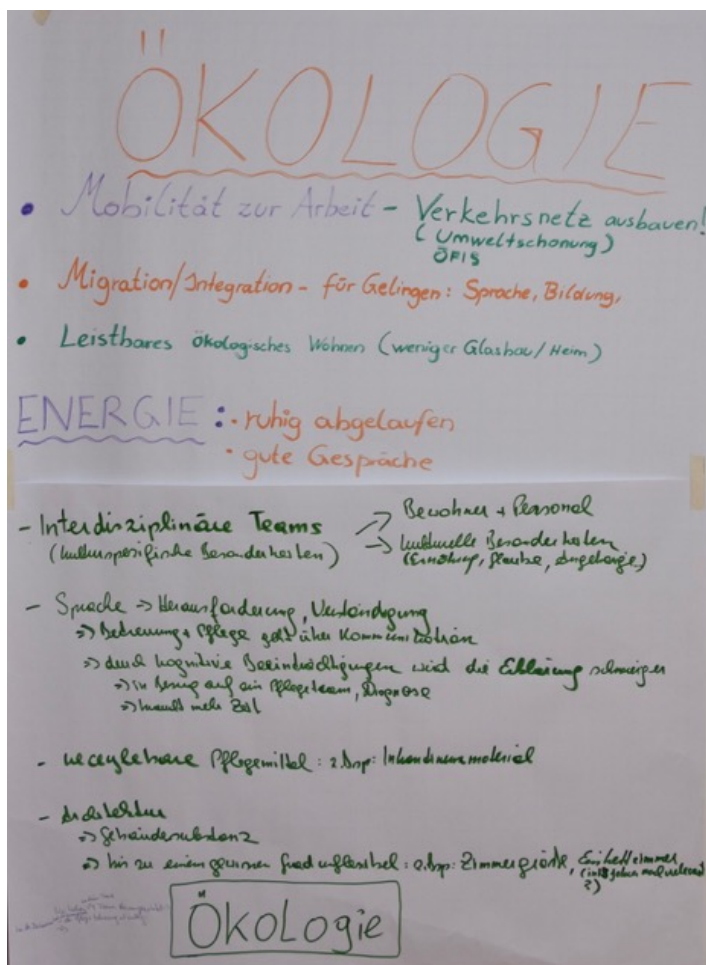 ÖKOLOGIE
• Mobilität zur Arbeit - Verkehrsnetz ausbauen!
(Umweltschonung)
ÖFIS
• Migration/Integration - für Gelingen: Sprache, Bildung,
• Leistbares ökologisches Wohnen (weniger Glasbau/Heim)
ENERGIE: • ruhig abgelaufen
• gute Gespräche
- Interdisziplinäre Teams → Bewohner + Personal
(kulturspezifische Besonderheiten) → kulturelle Besonderheiten
(Ernährung, Glaube, Angehörige)
- Sprache → Herausforderung, Verständigung
⇒ Betreuung + Pflege geht über Kommunikation
⇒ durch kognitive Beeinträchtigungen wird die Erklärung schwieriger
⇒ in Bezug auf ein Pflegeteam, Diagnose
⇒ braucht mehr Zeit
- recyclebare Pflegemittel: z.Bsp: Inkontinenzmaterial
- Architektur
⇒ Gebäudesubstanz
⇒ bis zu einem gewissen Grad unflexibel: z.Bsp: Zimmergröße, Einbettzimmer
(in 18 Jahren noch relevant
?)
ÖKOLogie